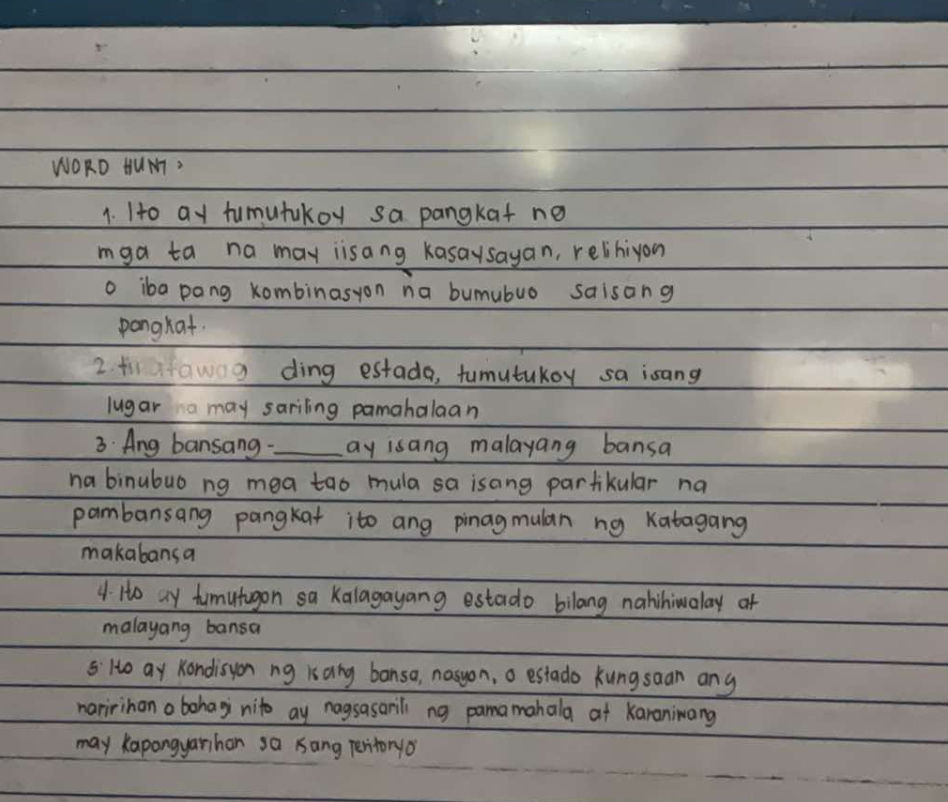 WORD HUNT:
1. Ito ay tumutukoy sa pangkat ng
mga ta na may iisang kasaysayan, relihiyon
o iba pang kombinasyon na bumubuo saisang
pangkat.
2. tinatawag ding estado, tumutukoy sa isang
lugar na may sariling pamahalaan
3. Ang bansang-_____ay isang malayang bansa
na binubuo ng mga tao mula sa isang partikular na
pambansang pangkat ito ang pinagmulan ng katagang
makabansa
4. Ito ay tumutugon sa kalagayang estado bilang nahihiwalay at
malayang bansa
5. Ito ay kondisyon ng isang bansa, nasyon, o estado kungsaan ang
naririhan o bahagi nito ay nagsasarili ng pamamahala at karaniwang
may kapangyarihan sa isang teritoryo